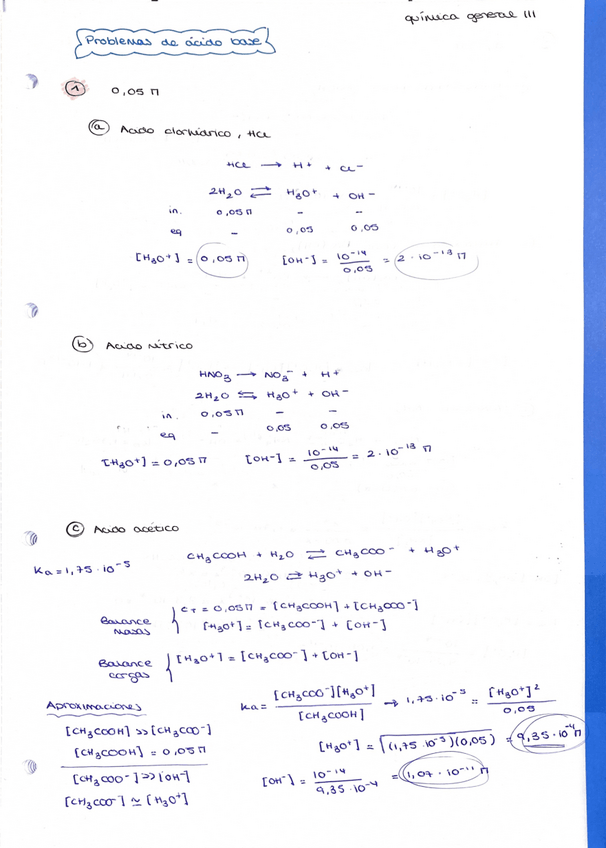 química general III
Problemas de ácido base
1 0,05 M
a Acido clorhídrico, HCl
HCl → H+ + Cl-
2H2O ⇌ H3O+ + OH-
in. 0,05 M - -
eq - 0,05 0,05
[H3O+] = 0,05 M [OH-] = 10^-14 / 0,05 = 2 · 10^-13 M
b Acido nítrico
HNO3 → NO3- + H+
2H2O ⇌ H3O+ + OH-
in. 0,05 M - -
eq - 0,05 0,05
[H3O+] = 0,05 M [OH-] = 10^-14 / 0,05 = 2 · 10^-13 M
c Acido acético
Ka = 1,75 · 10^-5 CH3COOH + H2O ⇌ CH3COO- + H3O+
2H2O ⇌ H3O+ + OH-
Balance masas { CT = 0,05 M = [CH3COOH] + [CH3COO-]
[H3O+] = [CH3COO-] + [OH-]
Balance cargas { [H3O+] = [CH3COO-] + [OH-]
Aproximaciones
[CH3COOH] >> [CH3COO-]
[CH3COOH] = 0,05 M
[CH3COO-] >> [OH-]
[CH3COO-] ≃ [H3O+]
Ka = [CH3COO-][H3O+] / [CH3COOH] → 1,75 · 10^-5 = [H3O+]^2 / 0,05
[H3O+] = √(1,75 · 10^-5)(0,05) = 9,35 · 10^-4 M
[OH-] = 10^-14 / 9,35 · 10^-4 = 1,07 · 10^-11 M